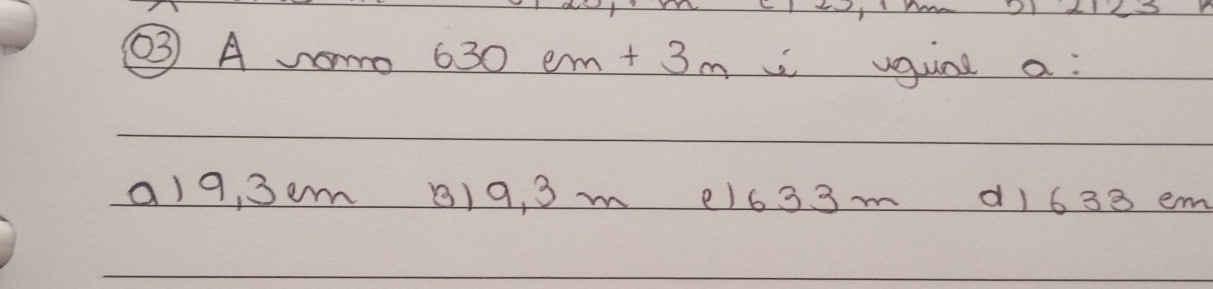 03 A soma 630 cm + 3m é igual a:
a) 9,3 cm B) 9,3 m c) 633 m d) 633 cm